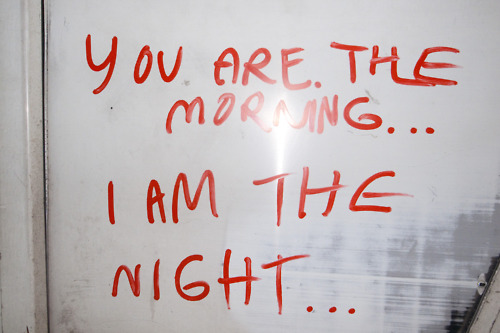 YOU ARE. THE
MORNING...
I AM THE
NIGHT...